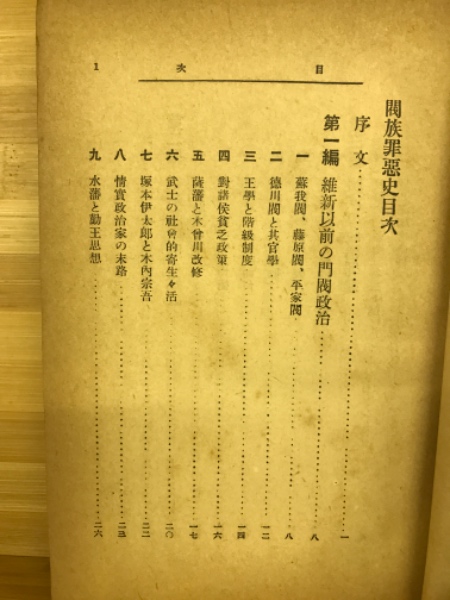 目次 1
閥族罪惡史目次
序文 一
第一編 維新以前の門閥政治 八
一 蘇我閥、藤原閥、平家閥 八
二 德川閥と其官學 一二
三 王學と階級制度 一四
四 對諸侯貧乏政策 一六
五 薩藩と木曾川改修 一七
六 武士の社會的寄生生活 二〇
七 塚本伊太郎と木內宗吾 二二
八 情實政治家の末路 二三
九 水藩と勤王思想 二六